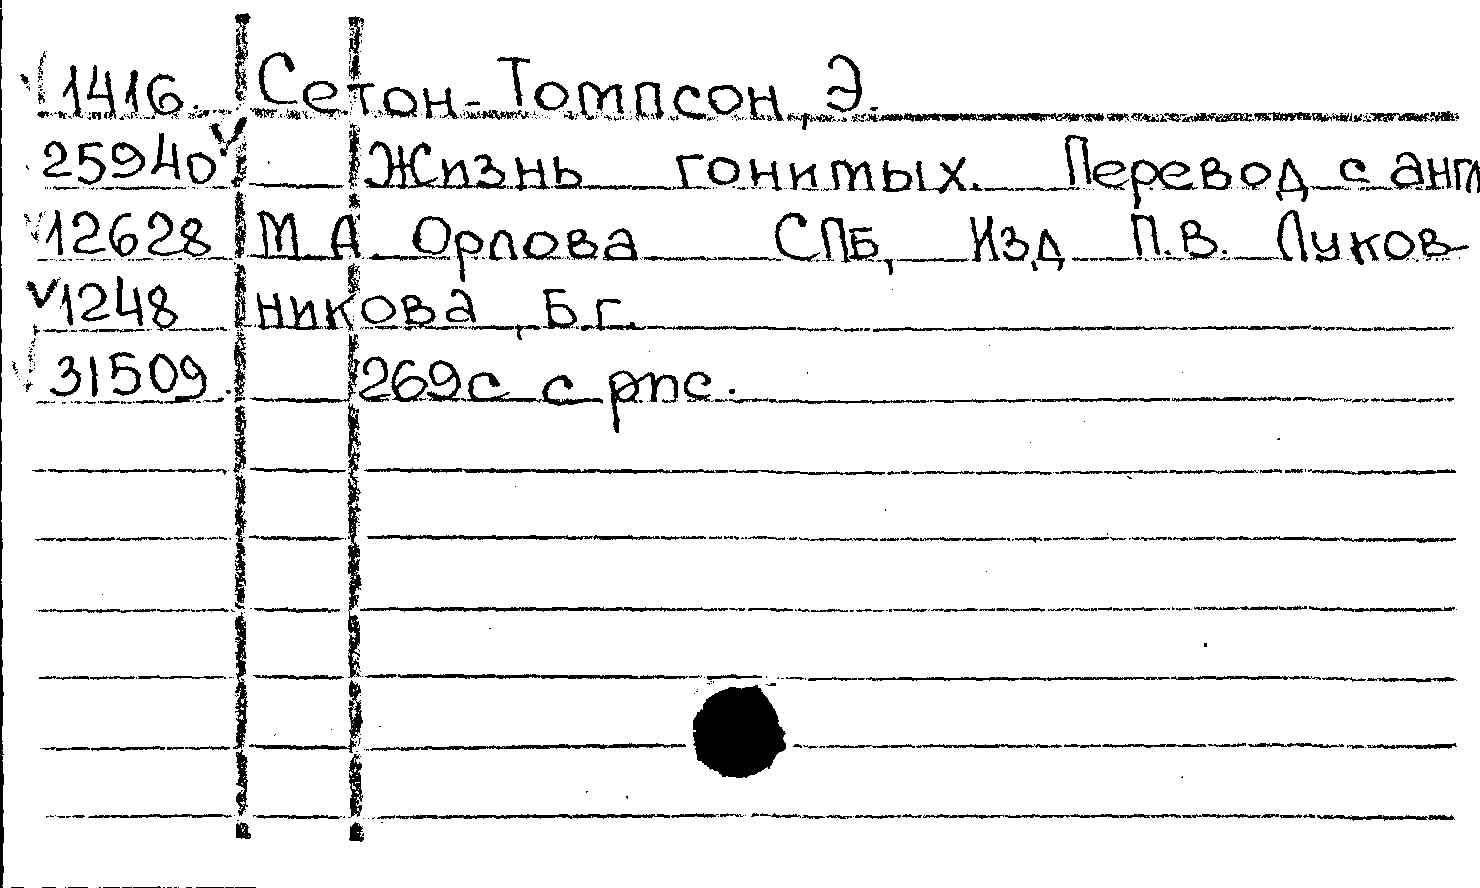 1416. Сетон-Томпсон, Э.
25940 Жизнь гонимых. Перевод с анг
12628 М.А. Орлова СПБ, Изд П.В. Луков-
1248 никова, Б.г.
31509. 269с с рис.